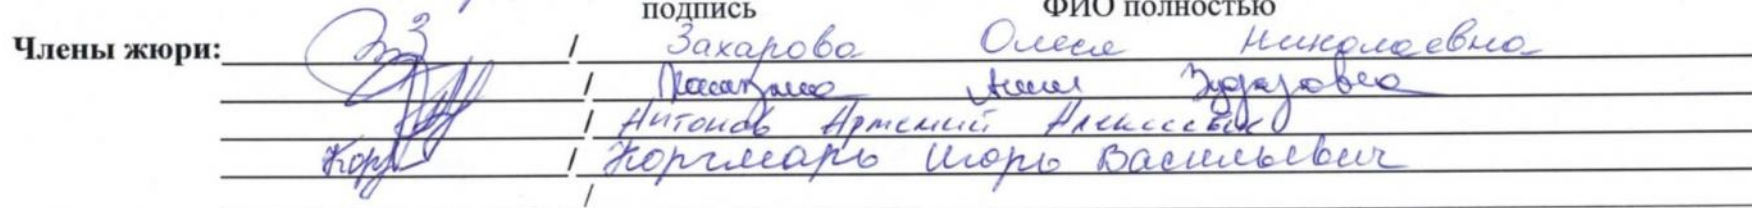 подпись ФИО полностью
Члены жюри: / Захарова Олеся Николаевна
/ Анна
/ Антонов Артемий Алексеевич
/ Коргмарь Игорь Васильевич
/